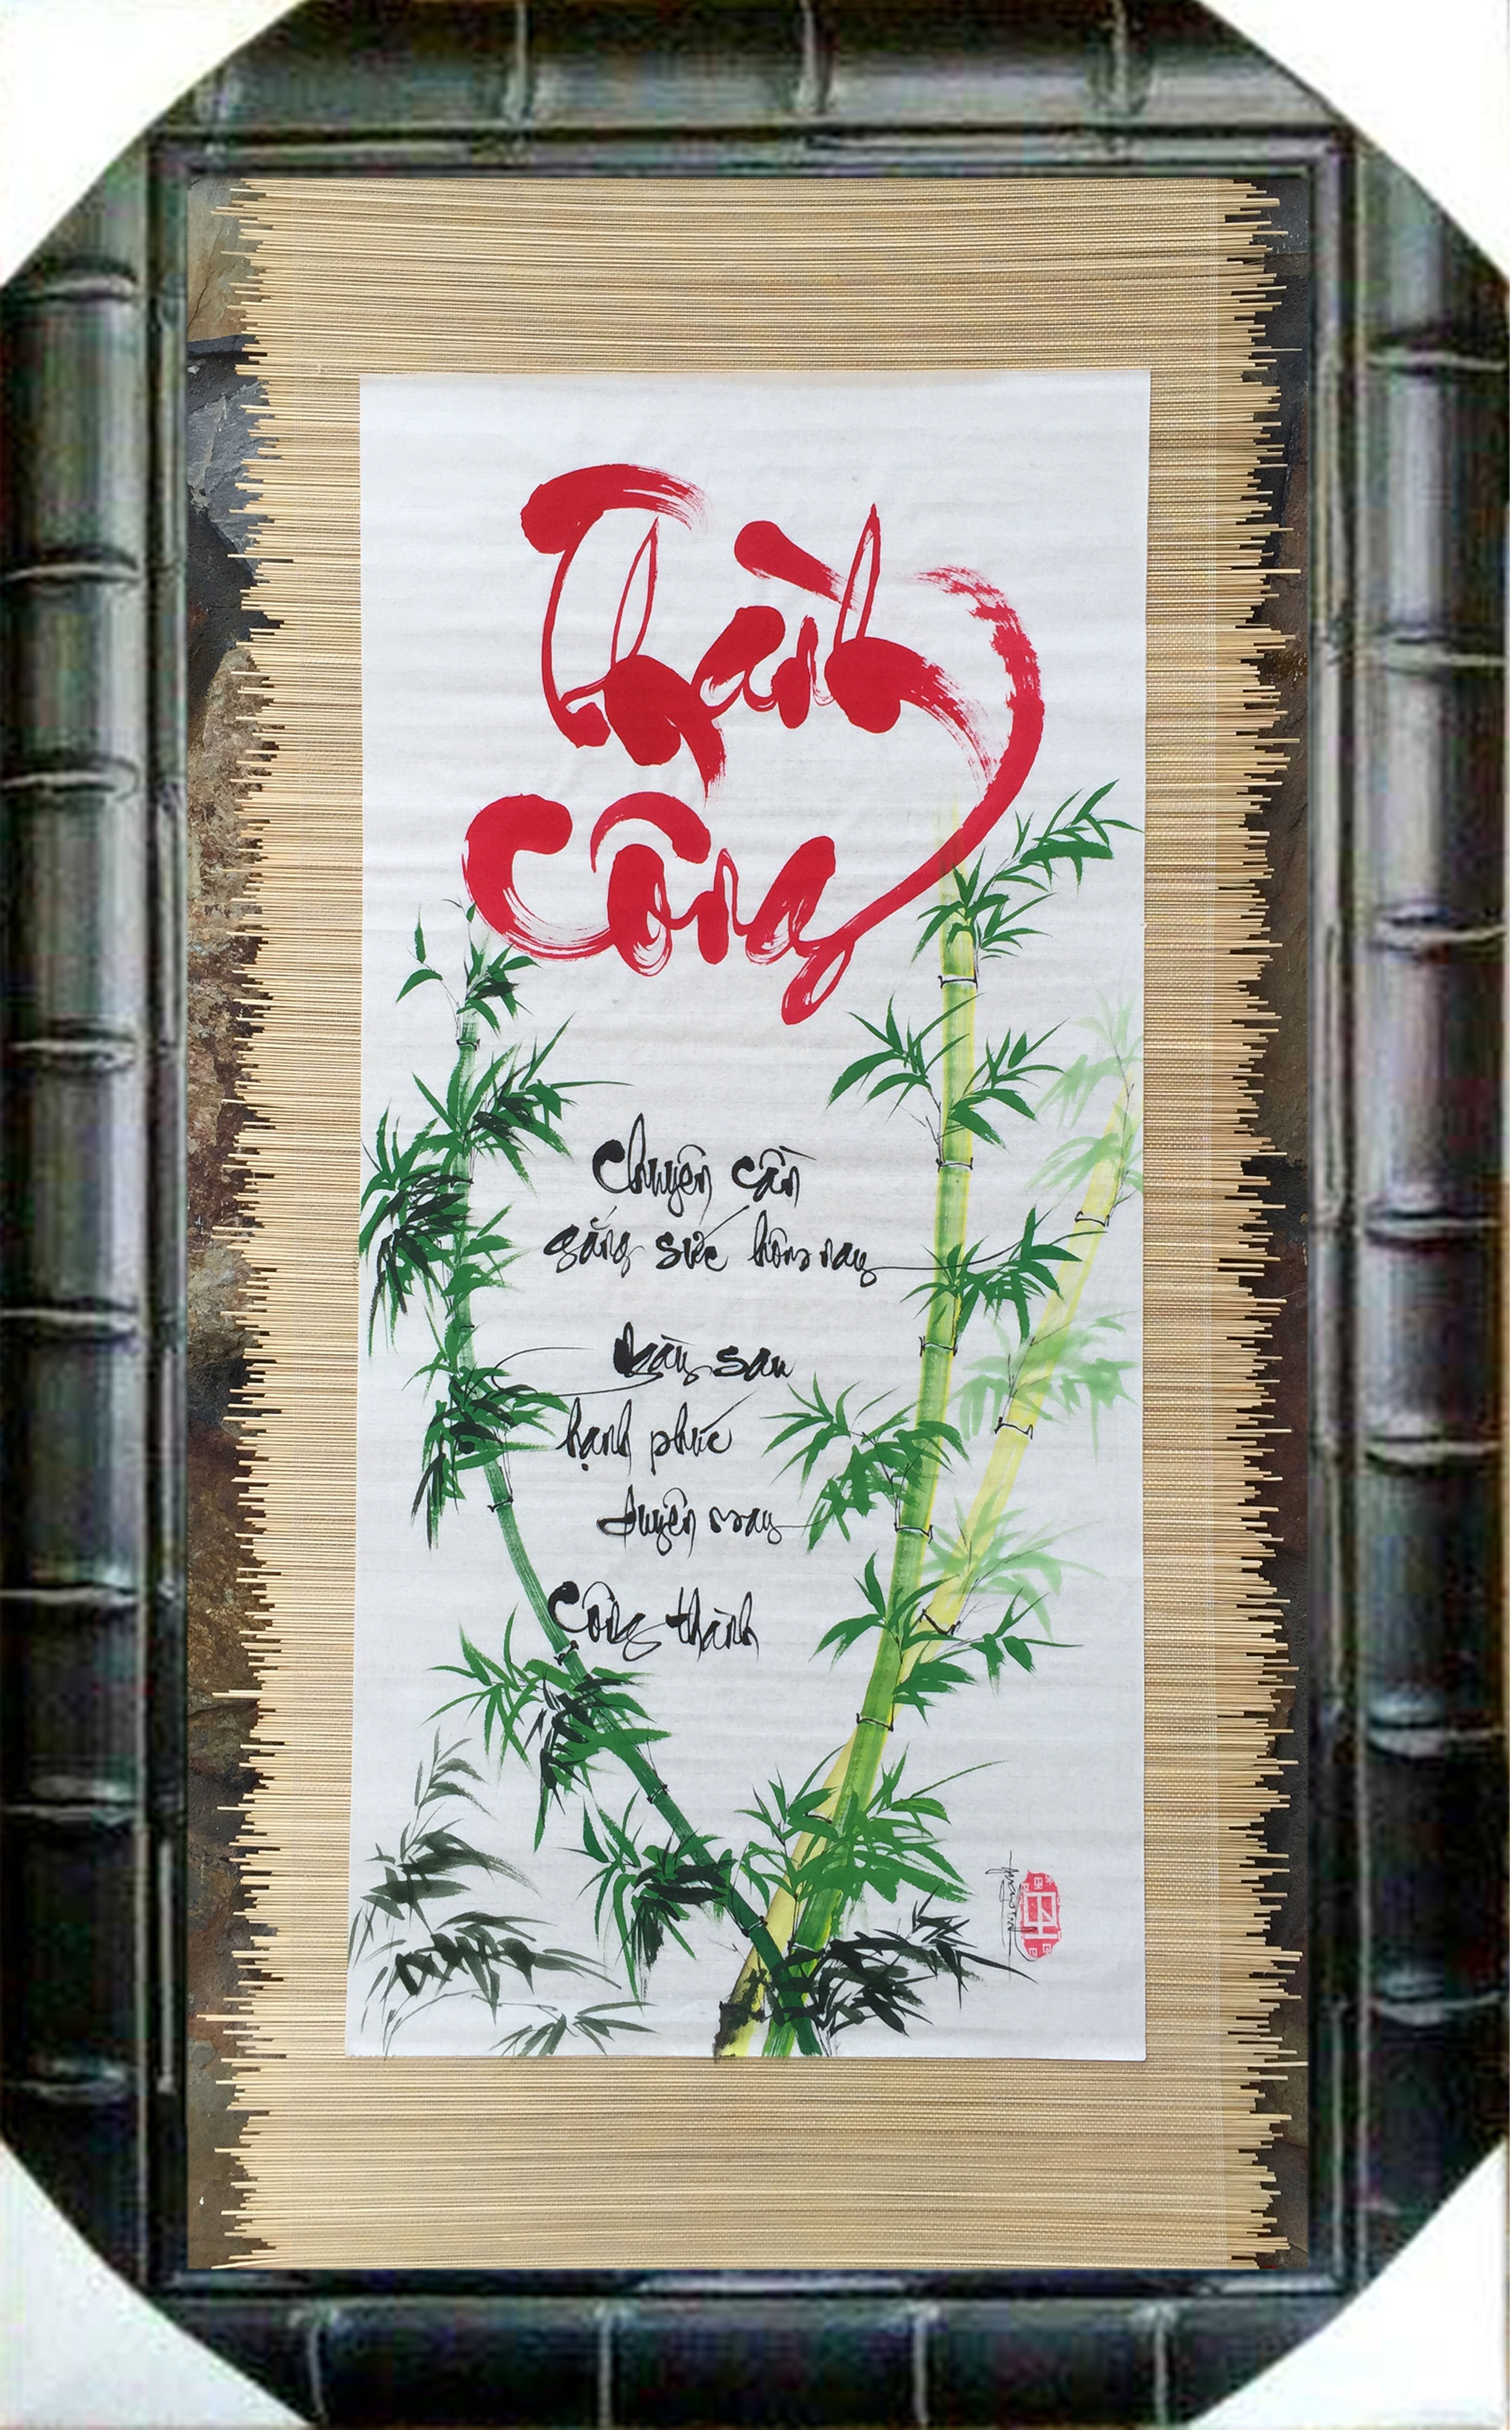 Thành
Công
Chuyên cần
gắng sức hôm nay
Ngày sau
hạnh phúc
duyên may
Công thành